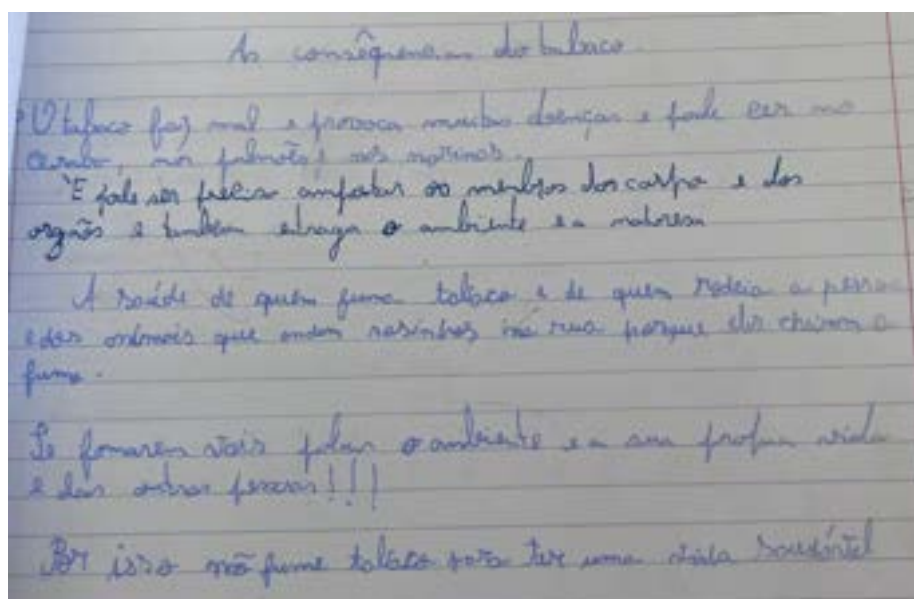 As consêquencias do tabaco.
O tabaco faz mal e provoca muitas doenças e pode cer no
cerebo, nos pulmões, nos
E pode ser preciso os membros dos corpo e dos
orgãos e tambem estraga o ambiente e a naturesa
A saúde de quem fuma tabaco e de quem rodeia a pessoa
e dos animais que andam sosinhos na rua porque eles cheiram o
fumo.
Se fomarem vais o ambiente e a sua vida
e das outras pessoas!!!
Por isso não fume tabaco para ter uma vida saudável